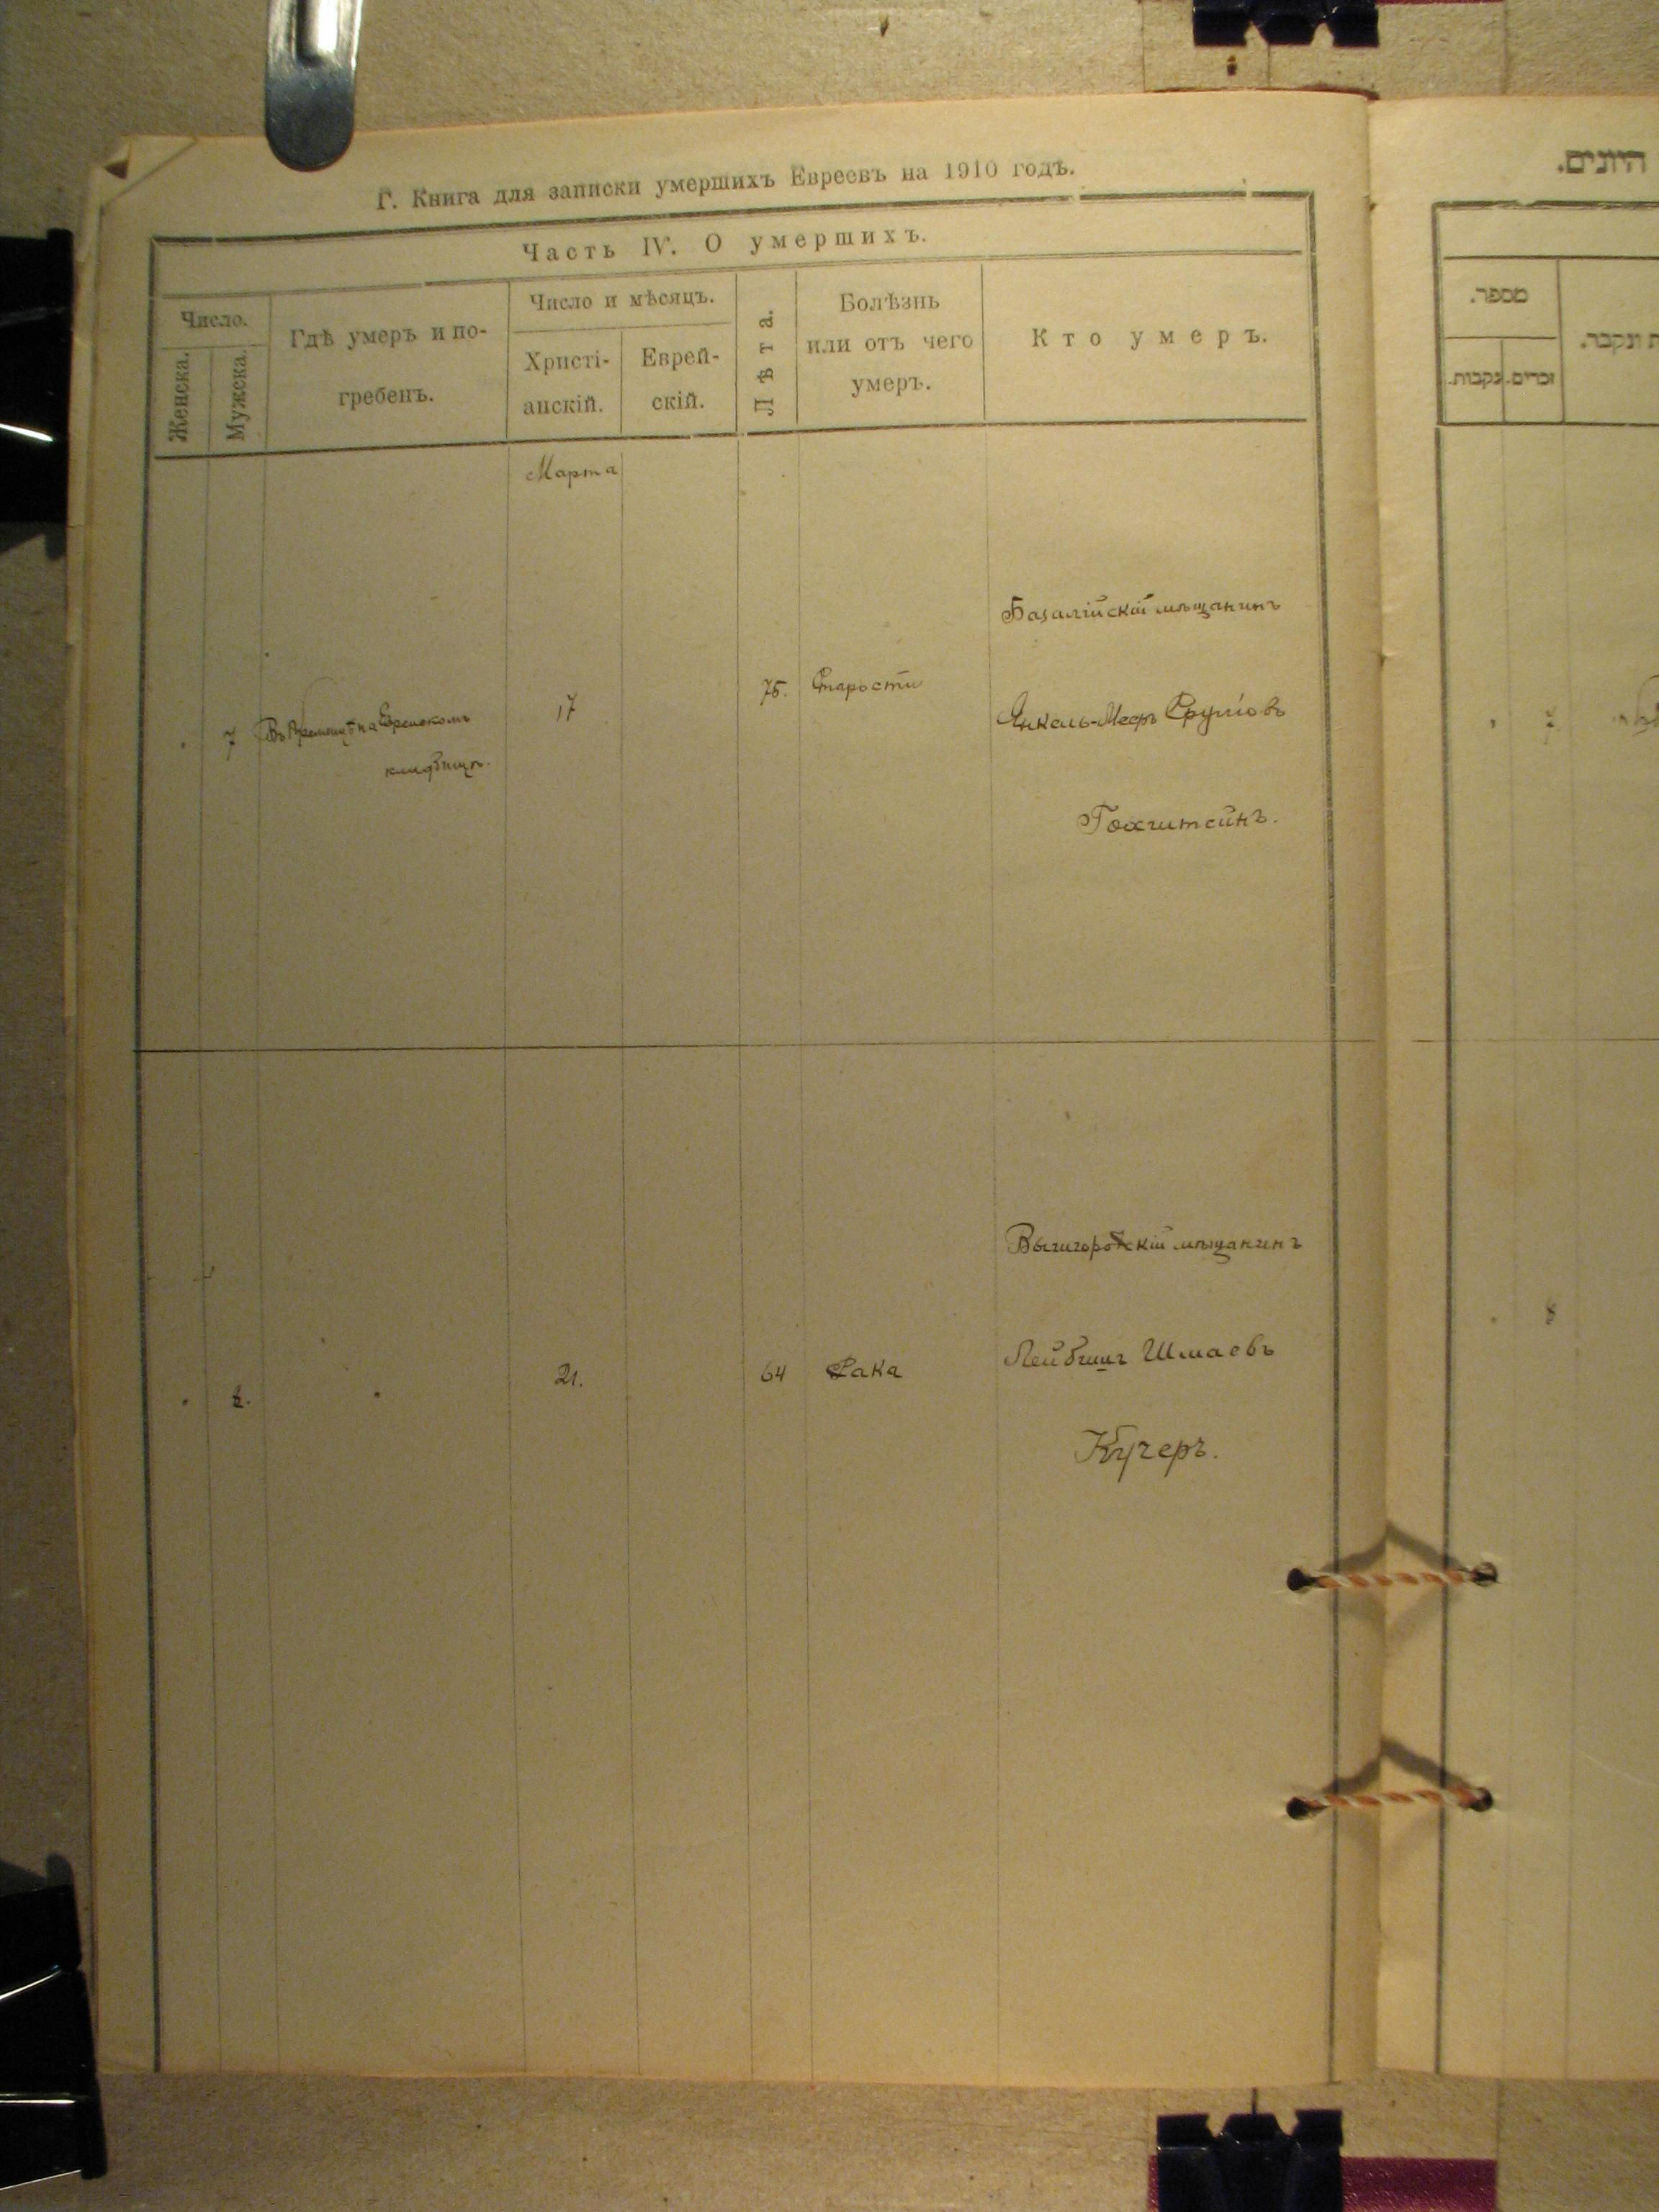 Г. Книга для записки умершихъ Евреевъ на 1910 годъ.
Часть IV. О умершихъ.
Число.
Женска.
Мужска.
Гдѣ умеръ и по-
гребенъ.
Число и мѣсяцъ.
Христі-
анскій.
Еврей-
скій.
Лѣта.
Болѣзнь
или отъ чего
умеръ.
Кто умеръ.
Марта
Базалійскій мѣщанинъ
7
Въ на Еврейскомъ
кладбищѣ.
17
75.
Старости
Янкель-Мееръ Сруліовъ
Гохштейнъ.
Вышгородскій мѣщанинъ
21.
64
Рака
Лейбишъ Шмаевъ
Кучеръ.
היונים.
מספר.
נקבות.
זכרים.
ונקבר.
7
8